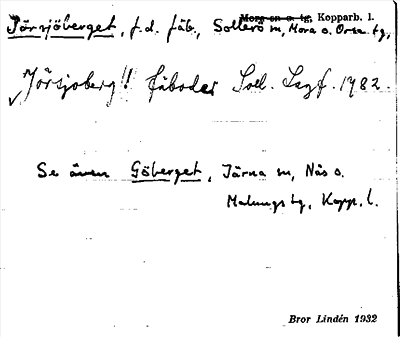 Mora sn o. tg, Kopparb. l.
Jörsjöberget, f.d. fäb., Sollerö sn, Mora o. Orsa tg,
Jörsjoberg!! fäbodar Soll. Lazf. 1982.
Se även Göberget, Järna sn, Nås o.
Malungs tg, Kopp. l.
Bror Lindén 1932